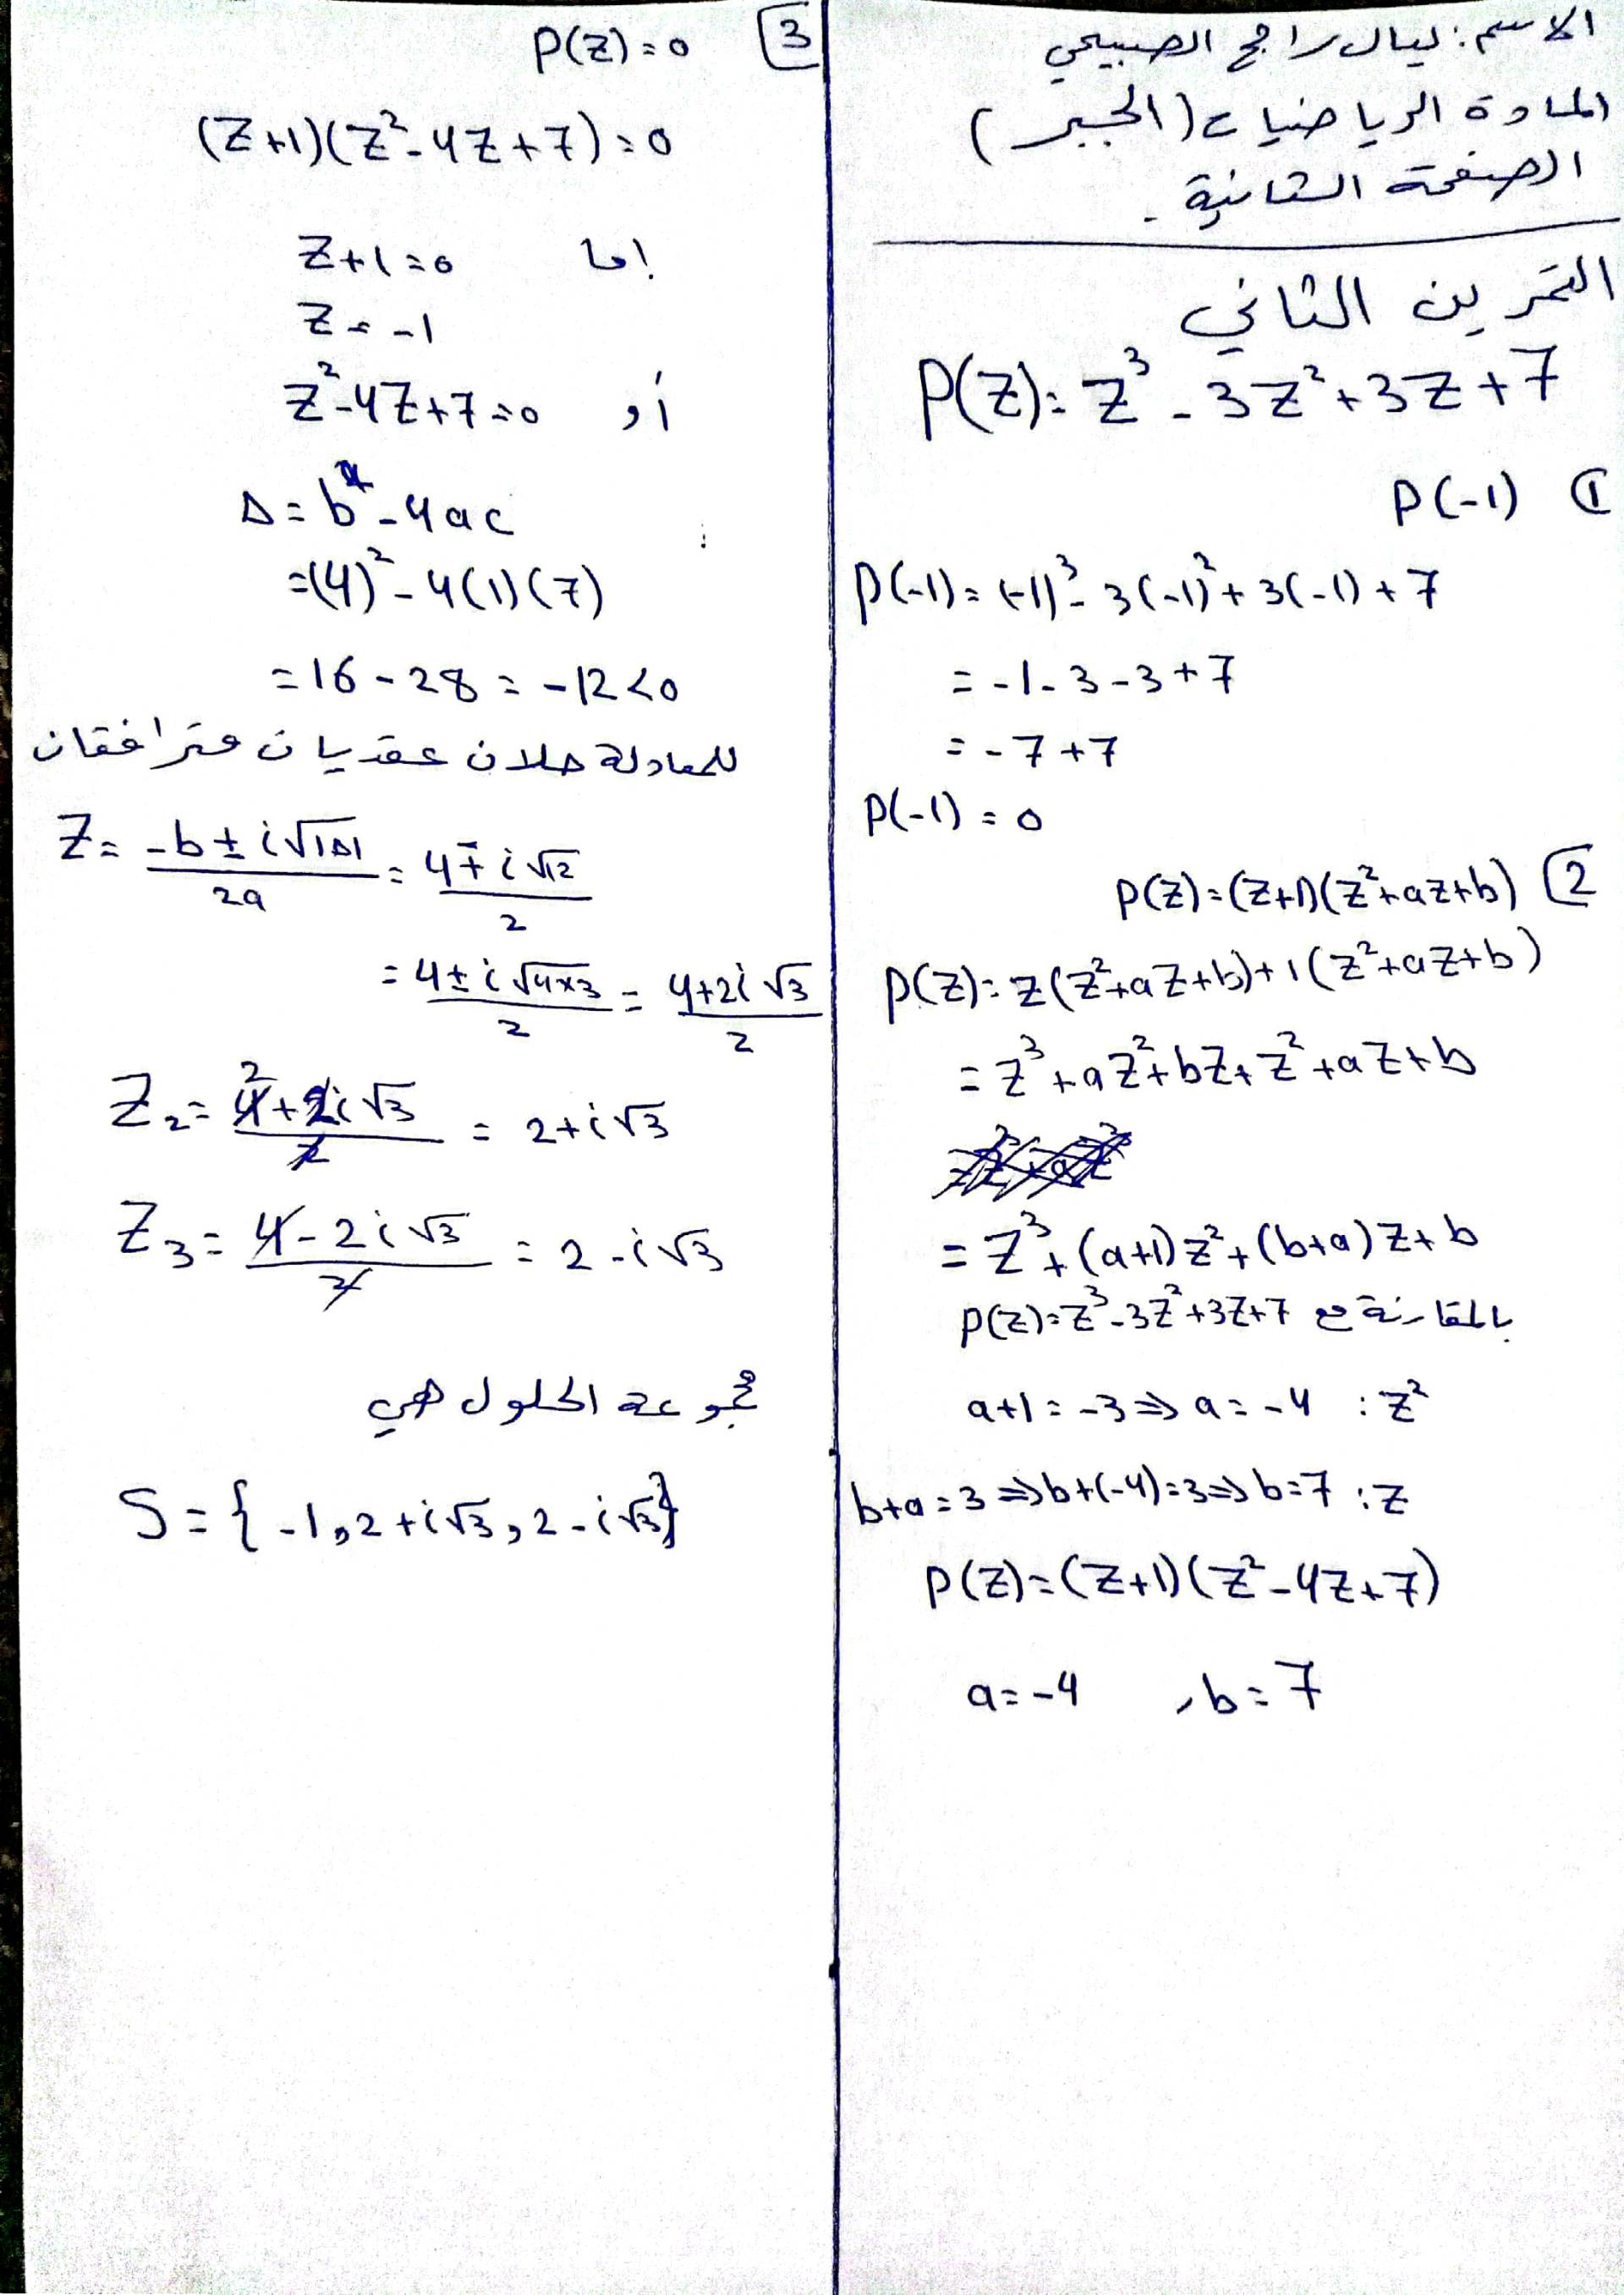 الاسم: ليال راجح الصبيحي
المادة الرياضيات (الجبر)
الصفحة الثانية.
التمرين الثاني
P(Z) = Z³ - 3Z² + 3Z + 7
① P(-1)
P(-1) = (-1)³ - 3(-1)² + 3(-1) + 7
= -1 - 3 - 3 + 7
= -7 + 7
P(-1) = 0
2 P(Z) = (Z+1)(Z² + aZ + b)
P(Z) = Z(Z² + aZ + b) + 1(Z² + aZ + b)
= Z³ + aZ² + bZ + Z² + aZ + b
= Z³ + (a+1)Z² + (b+a)Z + b
بالمقارنة مع P(Z) = Z³ - 3Z² + 3Z + 7
Z² : a+1 = -3 ⇒ a = -4
Z : b+a = 3 ⇒ b+(-4) = 3 ⇒ b = 7
P(Z) = (Z+1)(Z² - 4Z + 7)
a = -4 , b = 7
3 P(Z) = 0
(Z+1)(Z² - 4Z + 7) = 0
إما Z+1 = 0
Z = -1
أو Z² - 4Z + 7 = 0
Δ = b² - 4ac
= (4)² - 4(1)(7)
= 16 - 28 = -12 < 0
للمعادلة حلان عقديان مترافقان
Z = (-b ± i√|Δ|)/2a = (4 ∓ i√12)/2
= (4 ± i√4×3)/2 = (4+2i√3)/2
Z₂ = (4+2i√3)/2 = 2+i√3
Z₃ = (4-2i√3)/2 = 2-i√3
مجموعة الحلول هي
S = {-1, 2+i√3, 2-i√3}